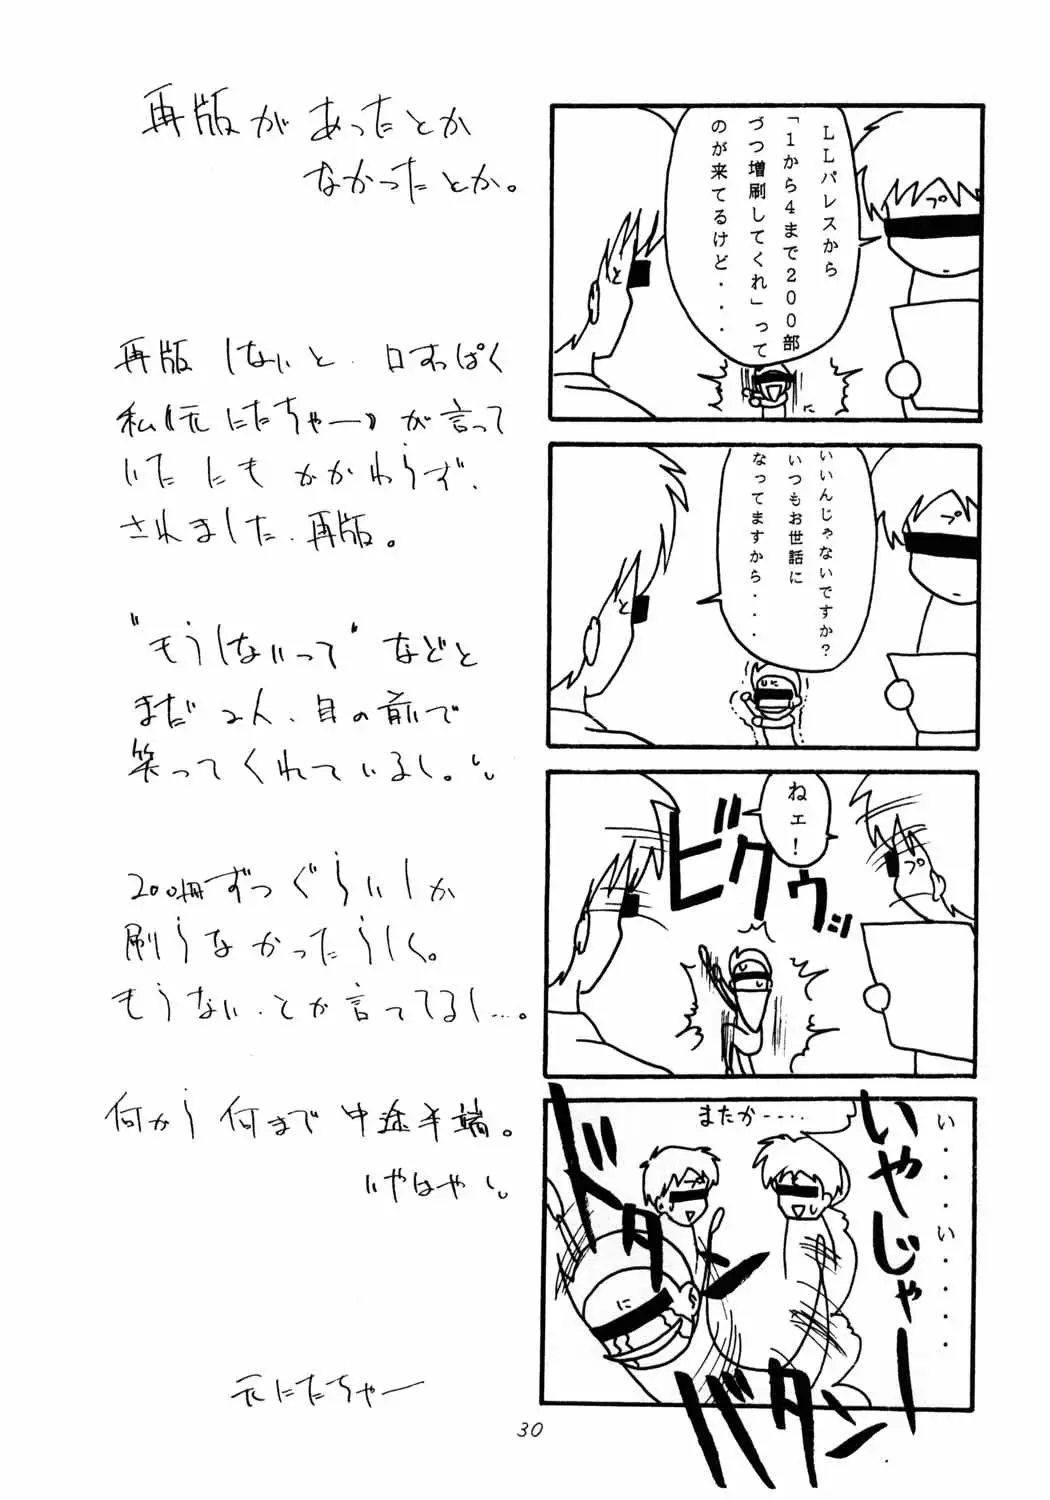 再版があったとか
なかったとか。
再版しないと、口すっぱく
私《元にたちゃー》が言って
いたにもかかわらず、
されました、再版。
"もうしないって"などと
まだ2人、目の前で
笑ってくれているし。
200冊ずつぐらいしか
刷らなかったらしく。
もうない、とか言ってるし…。
何から何まで中途半端。
いやはや
元にたちゃー
LLパレスから
「1から4まで200部
づつ増刷してくれ」って
のが来てるけど・・・
プ
と
に
いいんじゃないですか?
いつもお世話に
なってますから・・・
プ
と
に
ねェ!
ビクゥッ
プ
い・・・・い・・・・・
いやじゃー
またか・・・・・
ドタン
バタン
に
30